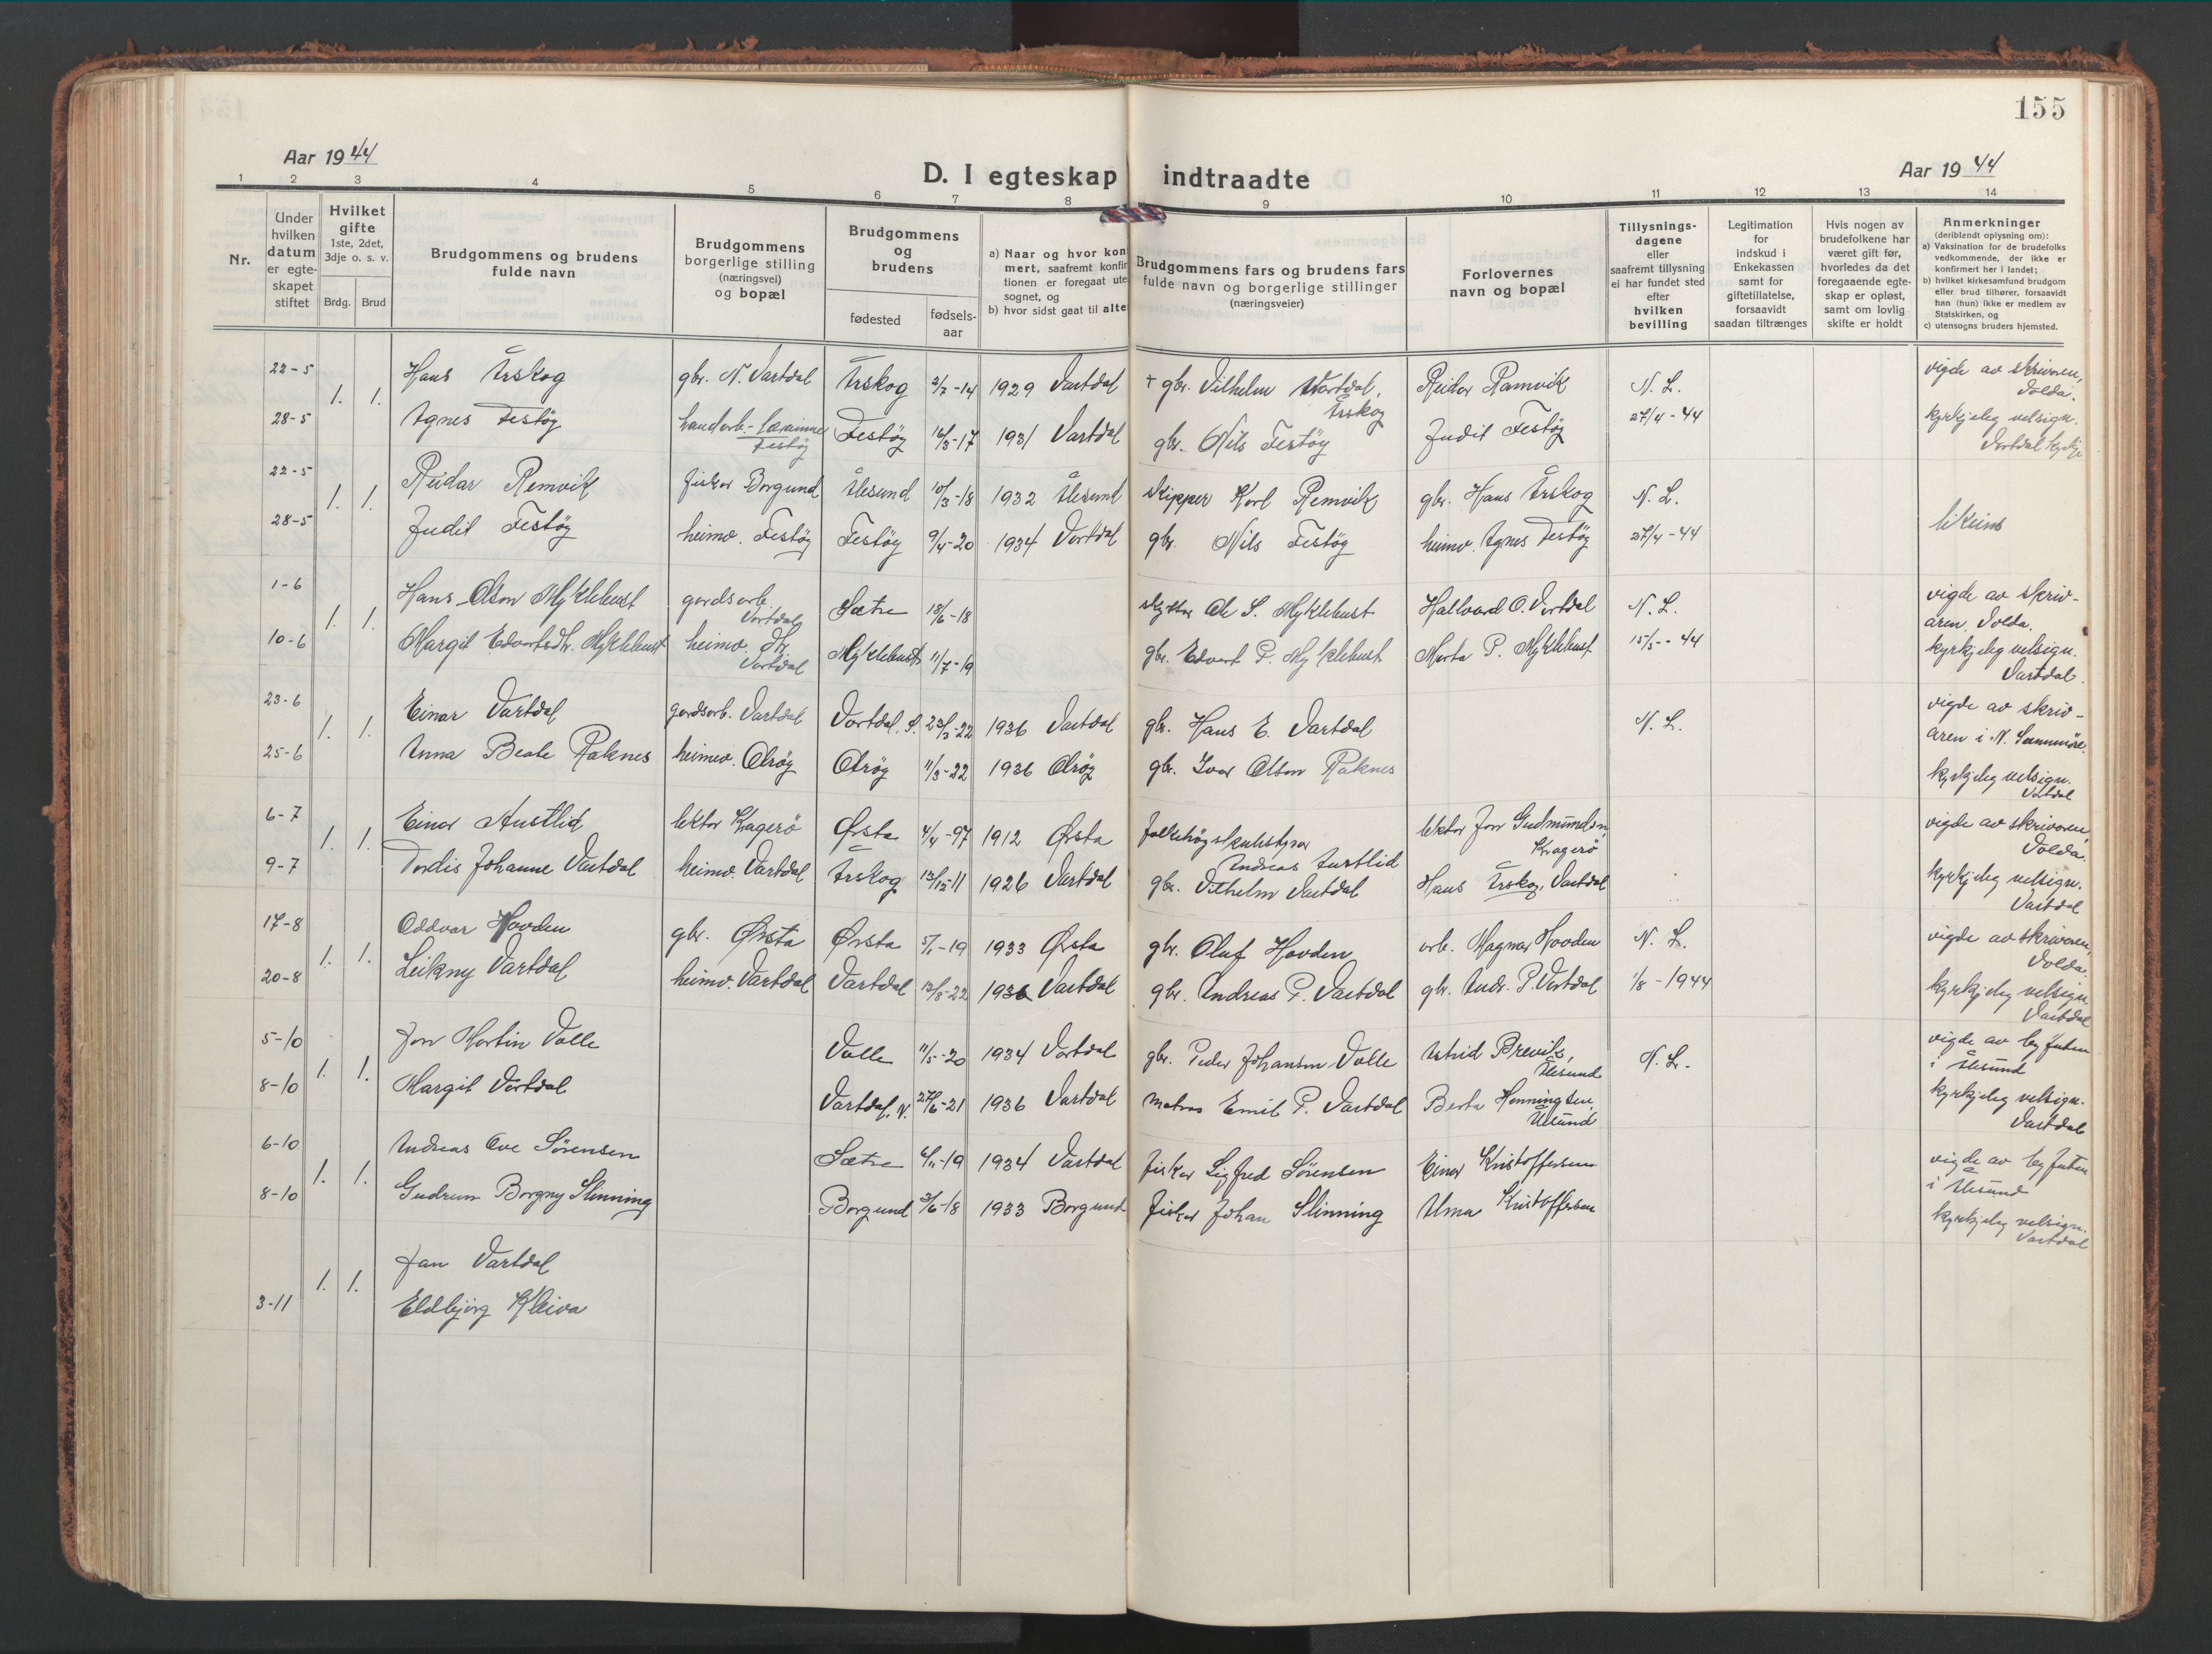 155
Aar 1944
D. I egteskap indtraadte
Aar 1944
1 2 3 4 5 6 7 8 9 10 11 12 13 14
Nr.
Under hvilken datum er egteskapet stiftet
Hvilket gifte 1ste, 2det, 3dje o. s. v.
Brdg. Brud
Brudgommens og brudens fulde navn
Brudgommens borgerlige stilling (næringsvei) og bopæl
Brudgommens og brudens
fødested
fødsels-aar
a) Naar og hvor kon
mert, saafremt konfir
tionen er foregaat ute
sognet, og
b) hvor sidst gaat til alte
Brudgommens fars og brudens fars
fulde navn og borgerlige stillinger
(næringsveier)
Forlovernes
navn og bopæl
Tillysnings-
dagene
eller
saafremt tillysning
ei har fundet sted
efter
hvilken
bevilling
Legitimation
for
indskud i
Enkekassen
samt for
giftetillatelse,
forsaavidt
saadan tiltrænges
Hvis nogen av
brudefolkene har
været gift før,
hvorledes da det
foregaaende egte-
skap er opløst,
samt om lovlig
skifte er holdt
Anmerkninger
(deriblandt oplysning om):
a) Vaksination for de brudefolks
vedkommende, der ikke er
konfirmert her i landet;
b) hvilket kirkesamfund brudgom
eller brud tilhører, forsaavidt
han (hun) ikke er medlem av
Statskirken, og
c) utensogns bruders hjemsted.
22-5 1. 1. Hans Årskog gbr. N. Vartdal Årskog 2/7-14 1929 Vartdal + gbr. Vilhelm Vartdal, Årskog Reidar Ramvik N. L. vigde av skrivaren, Volda.
28-5 Agnes Festøy handarb.-lærarinne Festøy Festøy 16/3-17 1931 Vartdal gbr. Nils Festøy Judit Festøy 27/4-44 kyrkjeleg velsign. Vartdal kyrkje
22-5 1. 1. Reidar Remvik fiskar Borgund Ålesund 10/3-18 1932 Ålesund skipper Karl Remvik gbr. Hans Årskog N. L.
28-5 Judit Festøy heimv. Festøy Festøy 9/4-20 1934 Vartdal gbr. Nils Festøy heimv. Agnes Festøy 27/4-44 likeins
1-6 1. 1. Hans Olson Myklebust gardsarb. Vartdal Sætre 18/6-18 Ole S. Myklebust Hallvard O. Vartdal N. L. vigde av skriv-
aren, Volda.
10-6 Margit Edvartsdtr. Myklebust heimv. Vartdal Myklebust 11/7-19 gbr. Edvart P. Myklebust Marta P. Myklebust 15/5-44 kyrkjeleg velsign. Vartdal.
23-6 1. 1. Einar Vartdal gardsarb. Vartdal Vartdal, S. 23/3-22 1936 Vartdal gbr. Hans E. Vartdal N. L. vigde av skriv-
aren i N. Sunnmøre.
25-6 Anna Beate Raknes heimv. Osrøy 11/3-22 1936 gbr. Ivar Olson Raknes kyrkjeleg velsign. Vartdal
6-7 1. 1. Einar Austlid lektor Kragerø Ørsta 4/4-97 1912 Ørsta folkehøgskulestyrar Andreas Austlid lektor Jon Gudmundsen, Kragerø vigde av skrivaren, Volda.
9-7 Tordis Johanne Vartdal heimv. Vartdal Årskog 12/12-11 1926 Vartdal gbr. Vilhelm Vartdal Hans Årskog, Vartdal kyrkjeleg velsign. Vartdal
17-8 1. 1. Oddvar Hovden gbr. Ørsta Ørsta 5/1-19 1933 Ørsta gbr. Oluf Hovden arb. Magnar Hovden N. L. vigde av skrivaren, Volda.
20-8 Leikny Vartdal heimv. Vartdal Vartdal 12/8-22 1936 Vartdal gbr. Andreas P. Vartdal gbr. Andr. P. Vartdal 1/8-1944 kyrkjeleg velsign. Vartdal
5-10 1. 1. Jon Martin Valle Valle 11/5-20 1934 Vartdal gbr. Peder Johansen Valle Astrid Brevik, Ålesund N. L. vigde av byfuten i Ålesund
8-10 Margit Vartdal Vartdal, N. 27/6-21 1936 Vartdal matros Emil P. Vartdal Berta Henningsen, Ålesund kyrkjeleg velsign. Vartdal
6-10 1. 1. Andreas Ove Sørensen Sætre 4/11-19 1934 Vartdal fiskar Sigfred Sørensen Einar Kristoffersen vigde av byfuten i Ålesund
8-10 Gudrun Borgny Slinning Borgund 3/6-18 1933 Borgund fiskar Johan Slinning Alma Kristoffersen kyrkjeleg velsign. Vartdal
1. 1. Jan Vartdal
3-11 Eldbjørg Kleiva